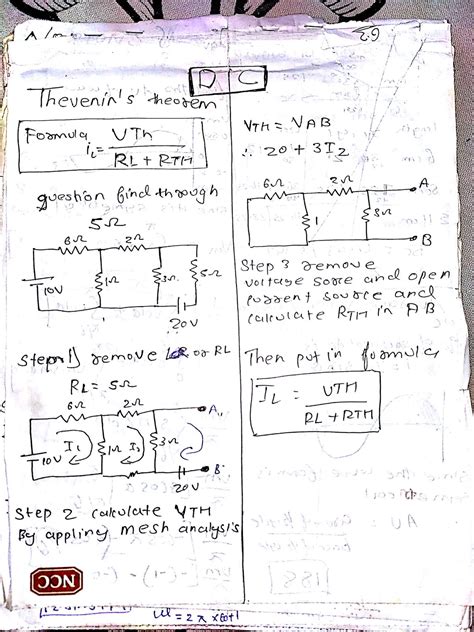 DC
Thevenin's theorem
Formula
iL = VTh
RL + RTH
question find through
5Ω
6Ω 2Ω
10V 1Ω 3Ω 5Ω
20V
Step 1) remove or RL
RL = 5Ω
6Ω 2Ω A
10V I1 1Ω I2 3Ω
B
20V
Step 2 calculate VTH
By appling mesh analysis
NCC
VTH = VAB
∴ 20 + 3I2
6Ω 2Ω A
1 3Ω
B
Step 3 remove
voltage sorce and open
current source and
calculate RTH in AB
Then put in formula
IL = VTH
RL + RTH